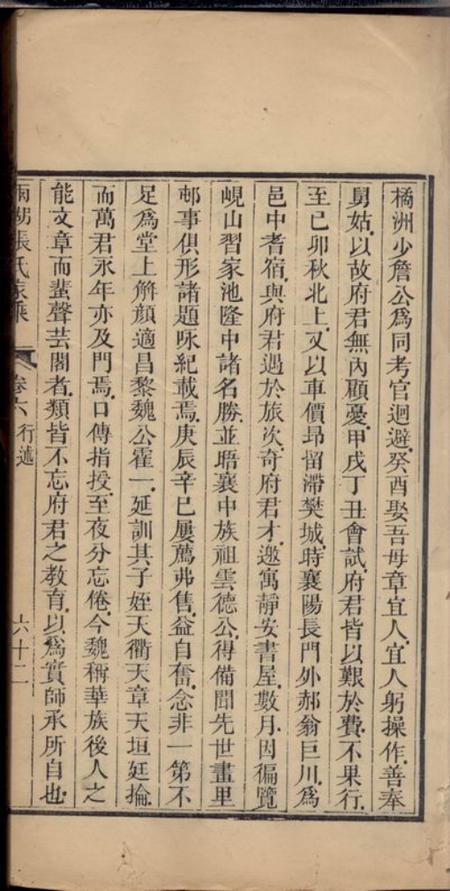 橘洲少詹公爲同考官迴避癸酉娶吾母章宜人宜人躬操作善奉
舅姑以故府君無內顧憂甲戌丁丑會試府君皆以艱於費不果行
至己卯秋北上又以車價昂留滯樊城時襄陽長門外郝翁巨川爲
邑中耆宿與府君遇於旅次奇府君才邀寓靜安書屋數月因徧覽
峴山習家池隆中諸名勝並晤襄中族祖雲德公得備聞先世畫里
邨事俱形諸題咏紀載焉庚辰辛巳屢薦弗售益自奮念非一第不
足爲堂上解顏適昌黎魏公霍一延訓其子姪天衢天章天垣廷掄
而萬君永年亦及門焉口傳指授至夜分忘倦今魏稱華族後人之
能文章而蜚聲芸閣者類皆不忘府君之教育以爲實師承所自也
兩湖張氏家乘 卷六 行述 六十二